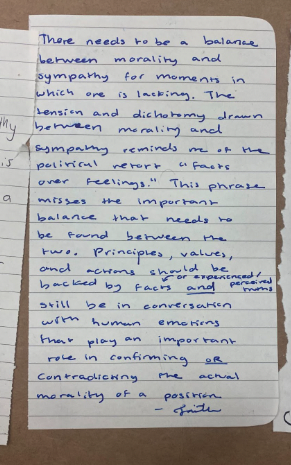 There needs to be a balance
between morality and
sympathy for moments in
which one is lacking. The
tension and dichotomy drawn
between morality and
sympathy reminds me of the
political retort "facts
over feelings." This phrase
misses the important
balance that needs to
be found between the
two. Principles, values,
and actions should be
or experienced/
backed by facts and perceived
truths
still be in conversation
with human emotions
that play an important
role in confirming OR
contradicting the actual
morality of a position
hy
is
a